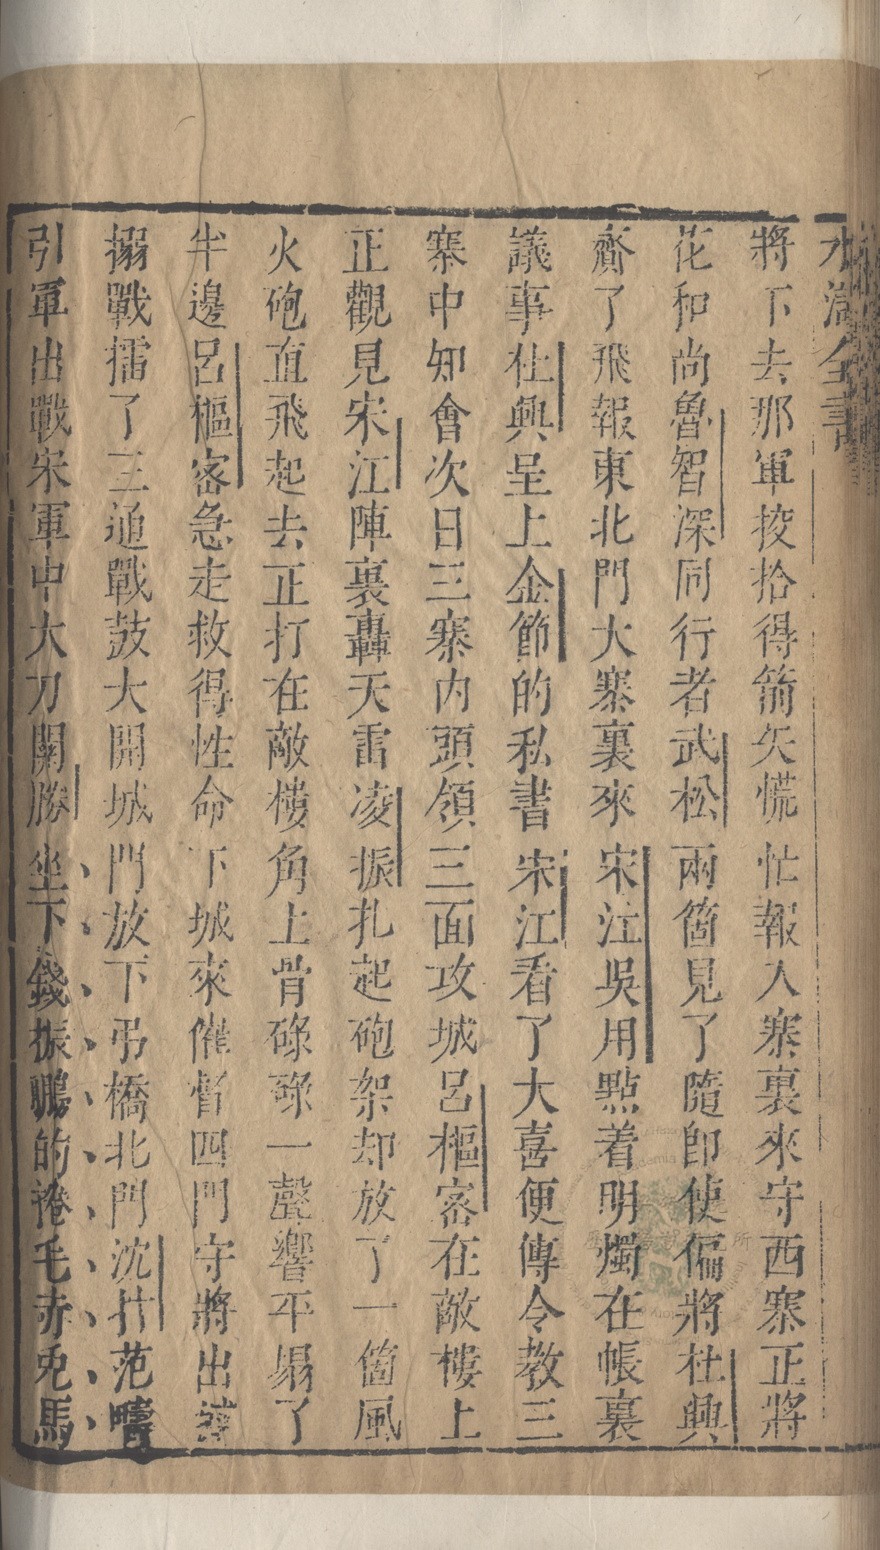 水滸全書
將下去那軍挍拾得箭矢慌忙報入寨裏來守西寨正將
花和尚魯智深同行者武松兩箇見了隨卽使偏將杜興
齎了飛報東北門大寨裏來宋江吳用點着明燭在帳裏
議事杜興呈上金節的私書宋江看了大喜便傳令教三
寨中知會次日三寨內頭領三面攻城呂樞密在敵樓上
正觀見宋江陣裏轟天雷凌振扎起砲架却放了一箇風
火砲直飛起去正打在敵樓角上骨碌碌一聲響平塌了
半邊呂樞密急走救得性命下城來催督四門守將出城
搦戰擂了三通戰鼓大開城門放下弔橋北門沈抃范疇
引軍出戰宋軍中大刀關勝坐下錢振鵬的捲毛赤兔馬